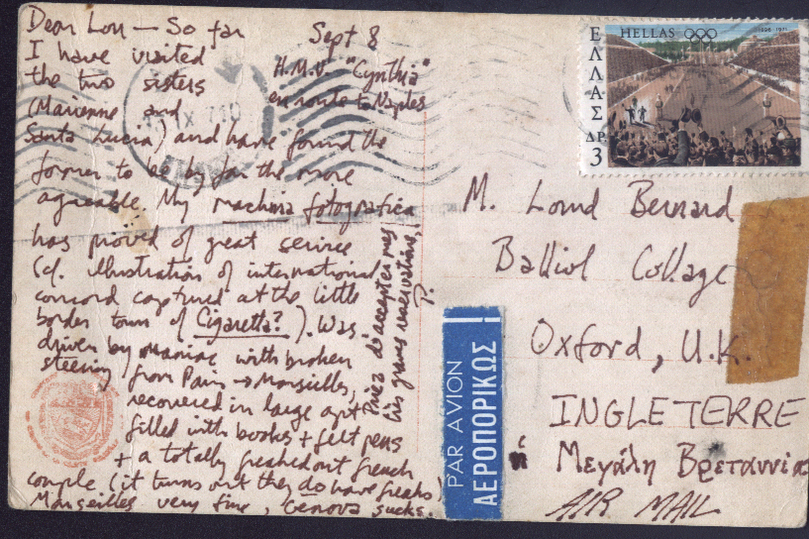 Dear Lou — So far
I have visited
the two sisters
(Marienne and
Santa Lucia) and have found the
former to be by far the more
agreable. My machina fotografica
has proved of great service
(cf. illustration of international
concord captured at the little
border town of Cigaretta?). Was
driven by maniac with broken
steering from Paris → Marseilles,
recovered in large apt
filled with books + felt pens
+ a totally freaked out french
couple (it turns out they do have freaks)
Marseilles very fine, Genova sucks.
Sept 8
H.M.V. "Cynthia"
en route to Naples
Priez d'accepter mes
les graves reservations,
P.
ΕΛΛΑΣ
HELLAS
1896 1971
ΔΡ.
3
M. Lound Bernard
Balliol College
Oxford, U.K.
INGLETERRE
ή Μεγάλη Βρεταννία
AIR MAIL
PAR AVION
ΑΕΡΟΠΟΡΙΚΩΣ